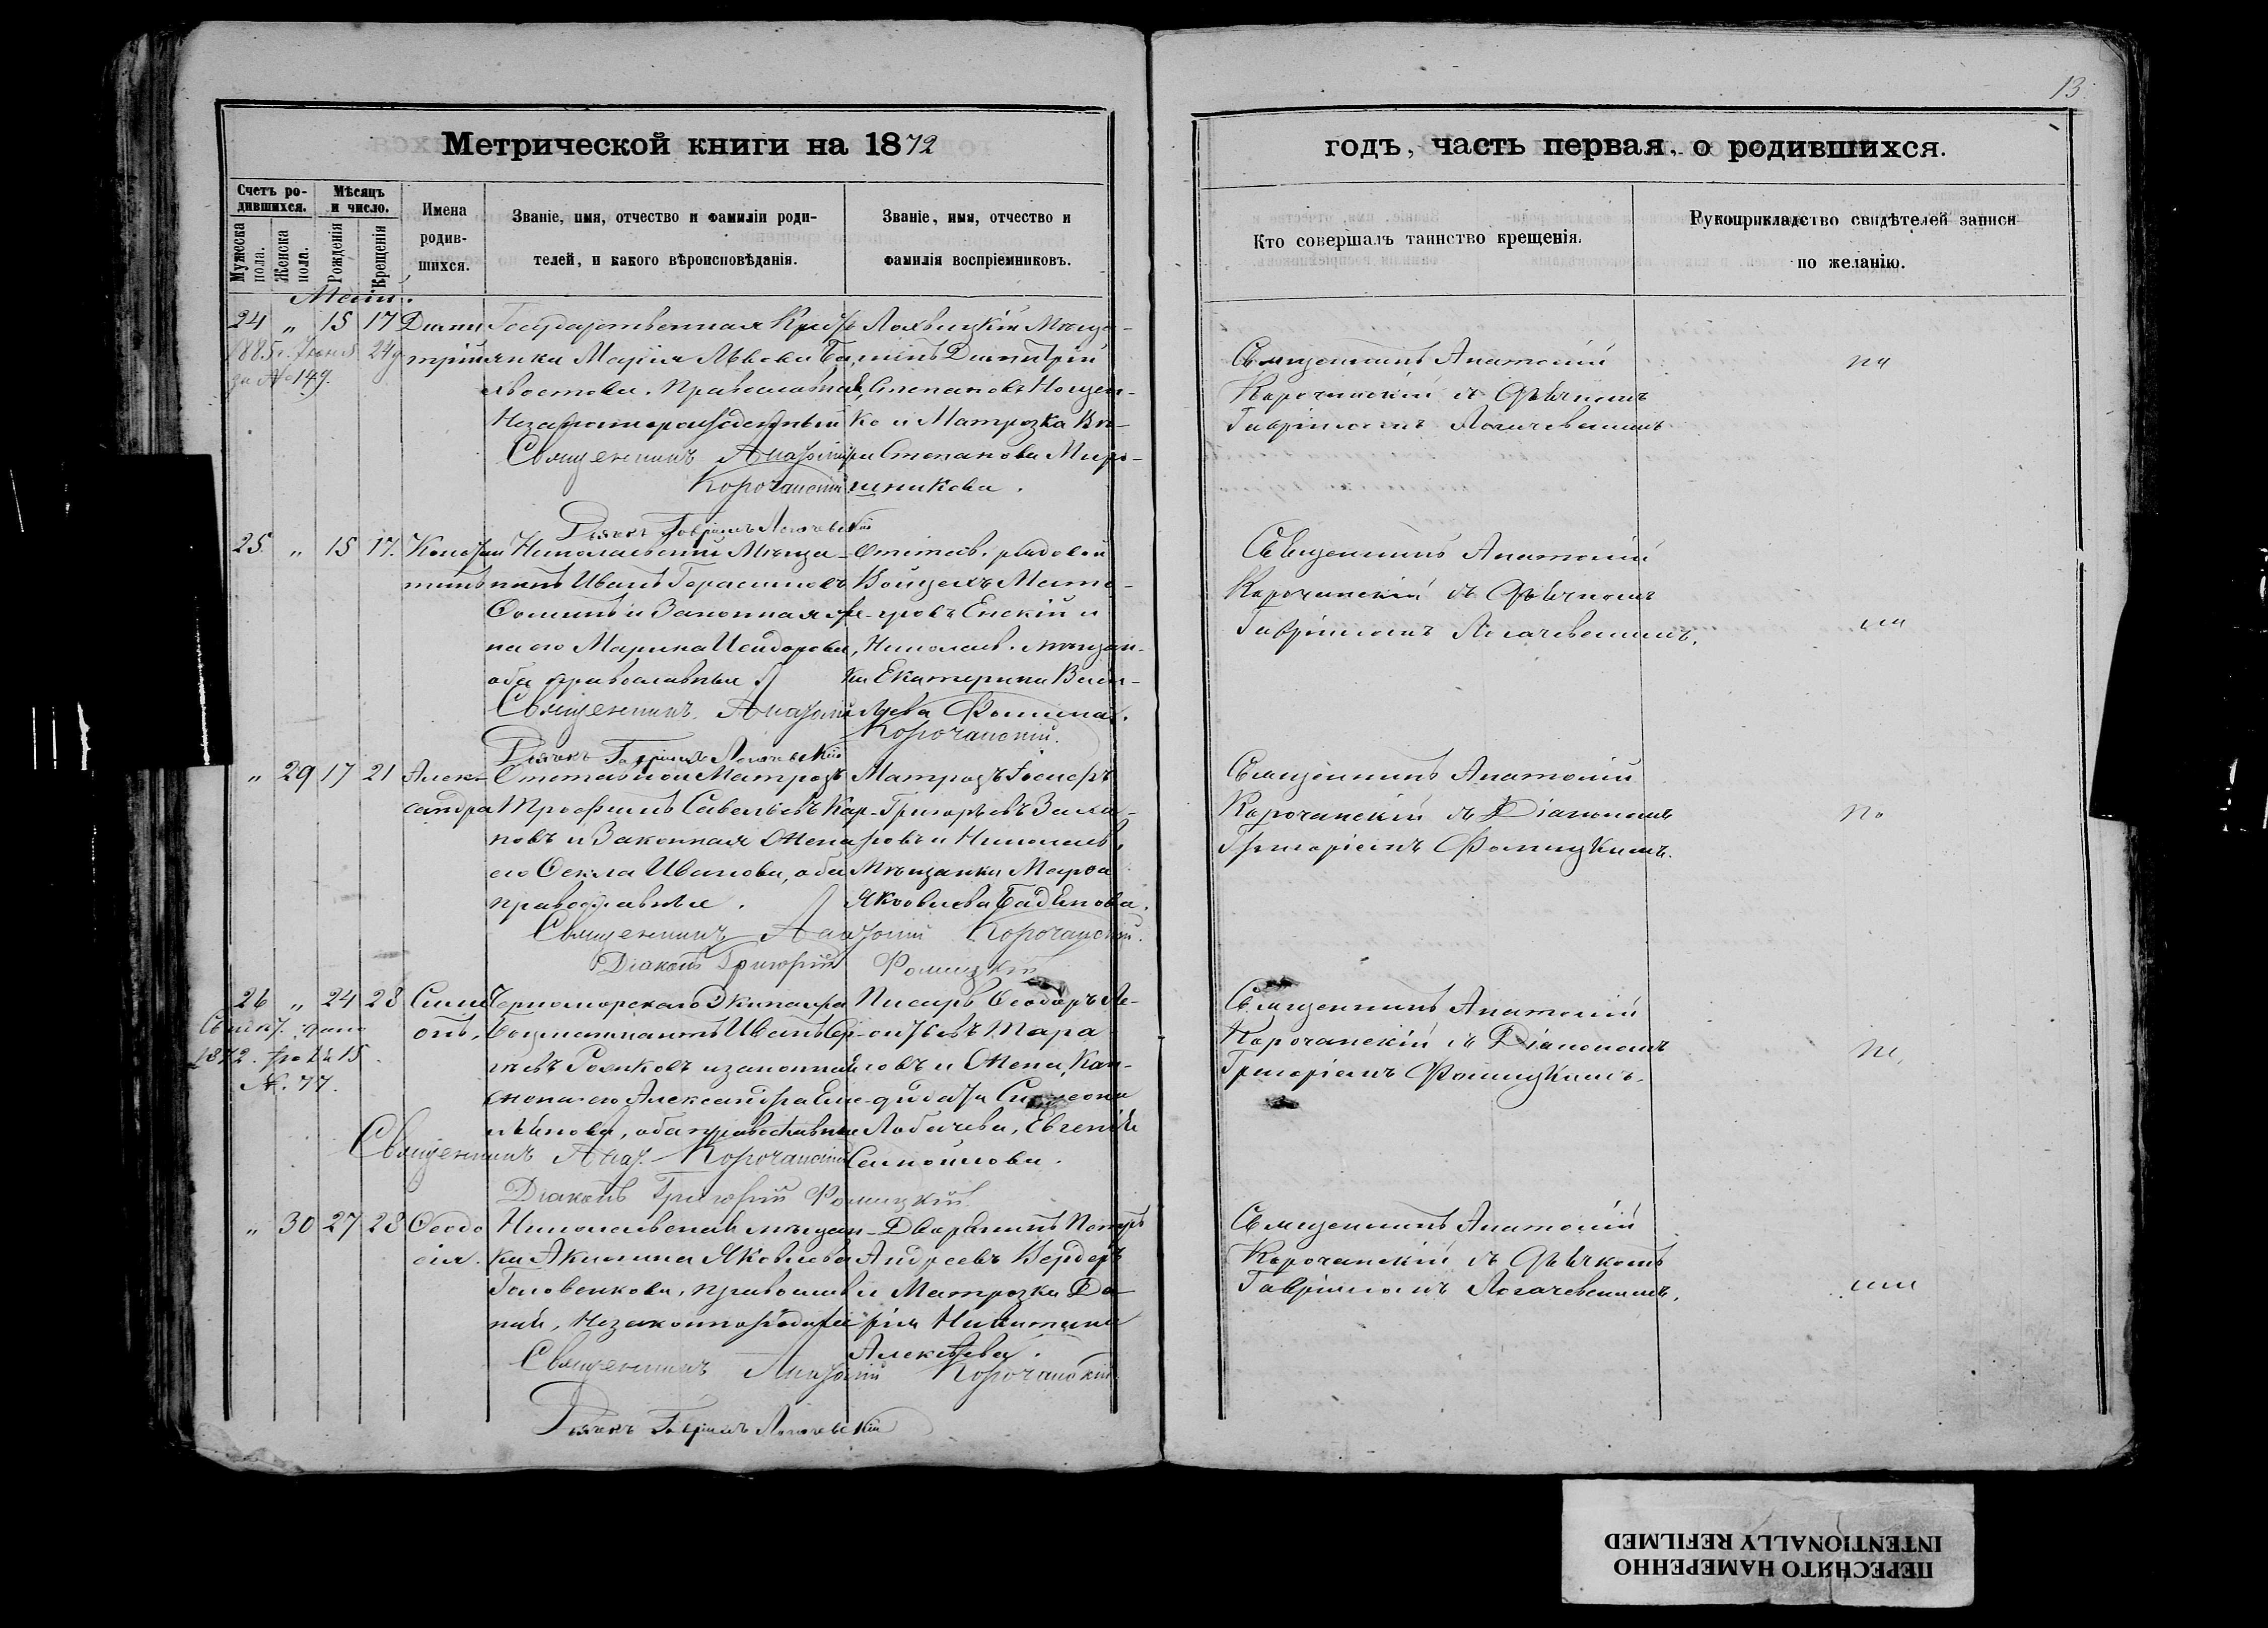 13
Метрической книги на 1872
годъ, часть первая, о родившихся.
Счетъ родившихся.
Мѣсяцъ и число.
Мужеска пола.
Женска пола.
Рожденія
Крещенія
Имена родившихся.
Званіе, имя, отчество и фамиліи родителей, и какого вѣроисповѣданія.
Званіе, имя, отчество и фамилія воспріемниковъ.
Кто совершалъ таинство крещенія.
Рукоприкладство свидѣтелей записи по желанію.
24 „ 15 17
1885 г. 24
за № 149.
Дими
трій
Государственная
янка Марія Львова Ба
хвостова. Православна
Незаконнорожденный
Священникъ Анатолій
Корочанскій
Дьячокъ Гавріилъ Логачевскій
Лохвицкій Мѣща-
нинъ Димитрій
Степановъ Нощен-
ко и Матрозка Вѣ-
ра Степанова Миро-
шникова.
Священникъ Анатолій
Корочанскій съ Дьячкомъ
Гавріиломъ Логачевскимъ
25. „ 15 17.
Констан
тинъ
Николаевскій Мѣща-
нинъ Иванъ Герасимовъ
Фоминъ и Законная же-
на его Марина Исидорова,
оба православные.
Священникъ Анатолій
Корочанскій.
Дьячокъ Гавріилъ Логачевскій
Отстав. рядовой
Войцехъ
Енскій и
Николаев. мѣщан-
ка Екатерина Васи-
льева Фомина.
Священникъ Анатолій
Корочанскій съ Дьячкомъ
Гавріиломъ Логачевскимъ.
„ 29 17 21
Алек-
сандра
Отставной Матрозъ
Трофимъ Савельевъ Кар-
повъ и Законная Жена
его Ѳекла Иванова, оба
православные.
Священникъ Анатолій Корочанскій.
Діаконъ Григорій Фомицкій
Матрозъ Іосифъ
Григорьевъ Заха-
ровъ и Николаев.
Мѣщанка Марѳа
Яковлева
Священникъ Анатолій
Корочанскій съ Діакономъ
Григоріемъ Фомицкимъ.
26 „ 24 28
1872.
№. 77.
Симе
онъ.
Черноморскаго Экипажа
Иванъ Сер-
гѣевъ и законная
жена его Александра Еме-
льянова, оба православные
Священникъ Анат. Корочанскій
Діаконъ Григорій Фомицкій.
Писарь Ѳеодоръ Ле-
онтьевъ Тара-
совъ и Жена Кан-
дидата Симеона
Лобачева, Евгенія
Самойлова.
Священникъ Анатолій
Корочанскій съ Діакономъ
Григоріемъ Фомицкимъ.
„ 30 27 28
Ѳеодо
сія.
Николаевская мѣщан-
ка Акилина Яковлева
Головенкова, православ
ная, Незаконнорожденная
Священникъ Анатолій Корочанскій
Дьячокъ Гавріилъ Логачевскій
Дворянинъ Петръ
Андреевъ Вердеръ
и Матрозка Да-
рія Никитина
Алексѣева.
Священникъ Анатолій
Корочанскій съ Дьячкомъ
Гавріиломъ Логачевскимъ.
ПЕРЕСНЯТО НАМЕРЕННО
INTENTIONALLY REFILMED